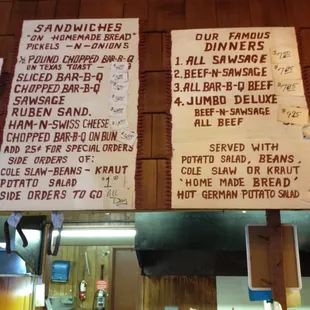 SANDWICHES
"ON HOMEMADE BREAD"
PICKELS -N- ONIONS
½ POUND CHOPPED BAR-B-Q
ON TEXAS TOAST -
SLICED BAR-B-Q
CHOPPED BAR-B-Q
SAWSAGE
RUBEN SAND.
HAM-N-SWISS CHEESE
CHOPPED BAR-B-Q ON BUN
ADD 25¢ FOR SPECIAL ORDERS
SIDE ORDERS OF:
COLE SLAW-BEANS-KRAUT
POTATO SALAD
SIDE ORDERS TO GO
OUR FAMOUS
DINNERS
1. ALL SAWSAGE
2. BEEF-N-SAWSAGE
3. ALL BAR-B-Q BEEF
4. JUMBO DELUXE
BEEF-N-SAWSAGE
ALL BEEF
SERVED WITH
POTATO SALAD, BEANS,
COLE SLAW OR KRAUT
"HOME MADE BREAD"
HOT GERMAN POTATO SALAD